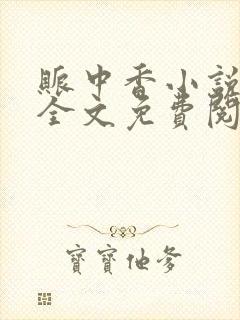 中香小說
全文免費閱
寶寶他爹